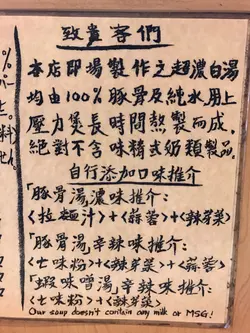 致貴客們
本店即場製作之超濃白湯
均由100%豚骨及純水,用上
壓力煲長時間熬製而成,
絕對不含味精或奶類製品.
自行添加口味推介
「豚骨湯,濃味推介:
<拉麵汁>+<蒜蓉>+<辣芽菜>
「豚骨湯,辛辣味推介:
<七味粉>+<辣芽菜>+<蒜蓉>
「蝦味噌湯,辛辣味推介:
<七味粉>+<辣芽菜>
Our soup doesn't contain any milk or MSG!
%
パー
上。
料)
せん。